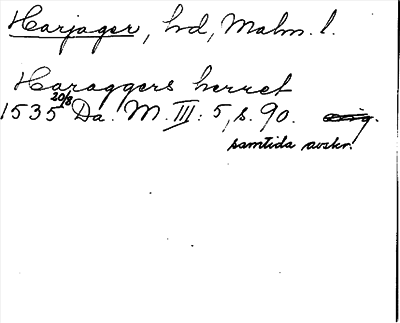 Harjager, hd, Malm. l.
Haraggers herret
1535 20/8 Da. M. III: 5, s. 90. orig.
samtida avskr.